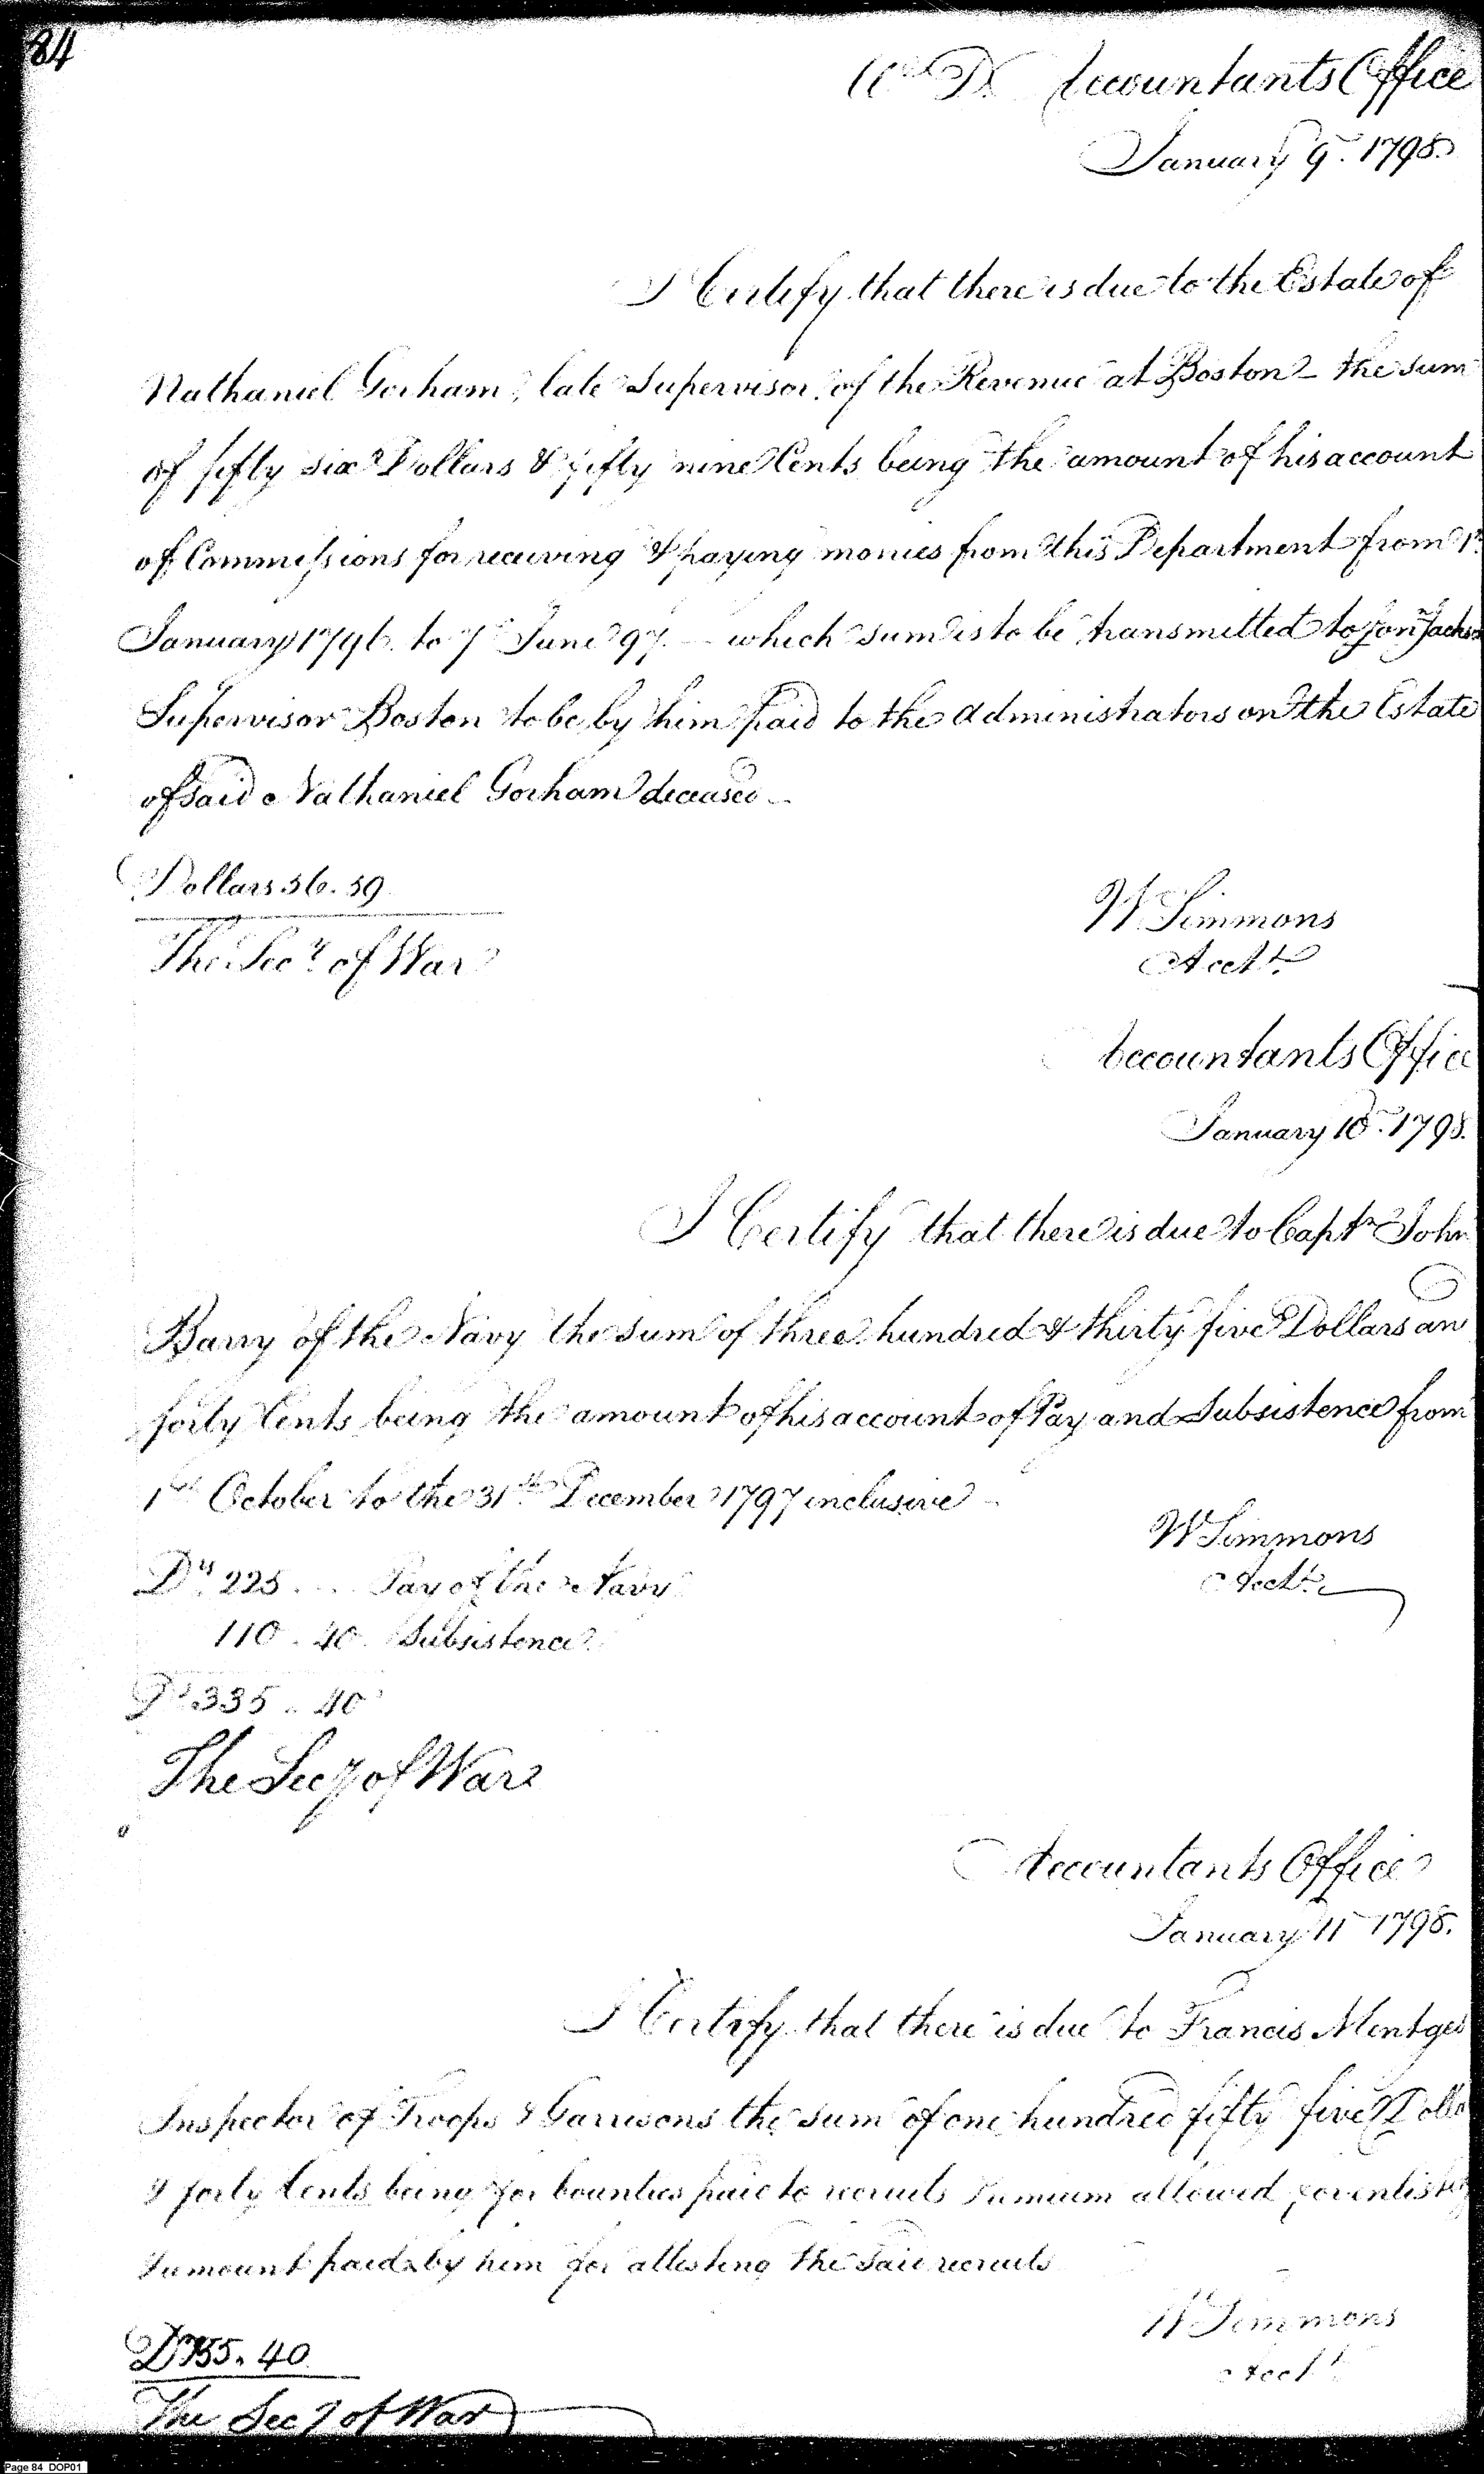 84
Wr Dt Accountants Office
January 9. 1798.
I Certify that there is due to the Estate of
Nathaniel Gorham, late Supervisor of the Revenue at Boston - the sum
of fifty six Dollars & fifty nine Cents being the amount of his account
of Commissions for receiving & paying monies from this Department from 1st
January 1796. to 7 June 97. - which sum is to be transmitted to Jon Jackson
Supervisor Boston to be by him paid to the administrators on the Estate
of said Nathaniel Gorham deceased -
Dollars 56.59
W Simmons
The Secy of War
Acctt
Accountants Office
January 10. 1798.
I Certify that there is due to Captn John
Barry of the Navy the sum of three hundred & thirty five Dollars an
forty Cents being the amount of his account of Pay and Subsistence from
1st October to the 31st December 1797 inclusive -
W Simmons
Ds 225 . . . Pay of the Navy
Acctt
110 . 40 Subsistence
Ds 335 . 40
The Secy of War
Accountants Office
January 11 1798.
I Certify that there is due to Francis Mentges
Inspector of Troops & Garrisons the sum of one hundred fifty five Dolla
& forty Cents being for bounties paid to recruits Premium allowed for enlisting
& amount paid by him for attesting the said recruits
W Simmons
D 155. 40
Acctt
The Secy of War
Page 84 DOP01